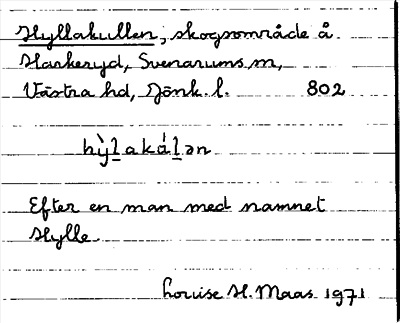 Hyllakullen, skogsområde å
Harkeryd, Svenarums sn,
Västra hd, Jönk. l. 802
hỳlakál̲ən
Efter en man med namnet
Hylle.
Louise H. Maas 1971